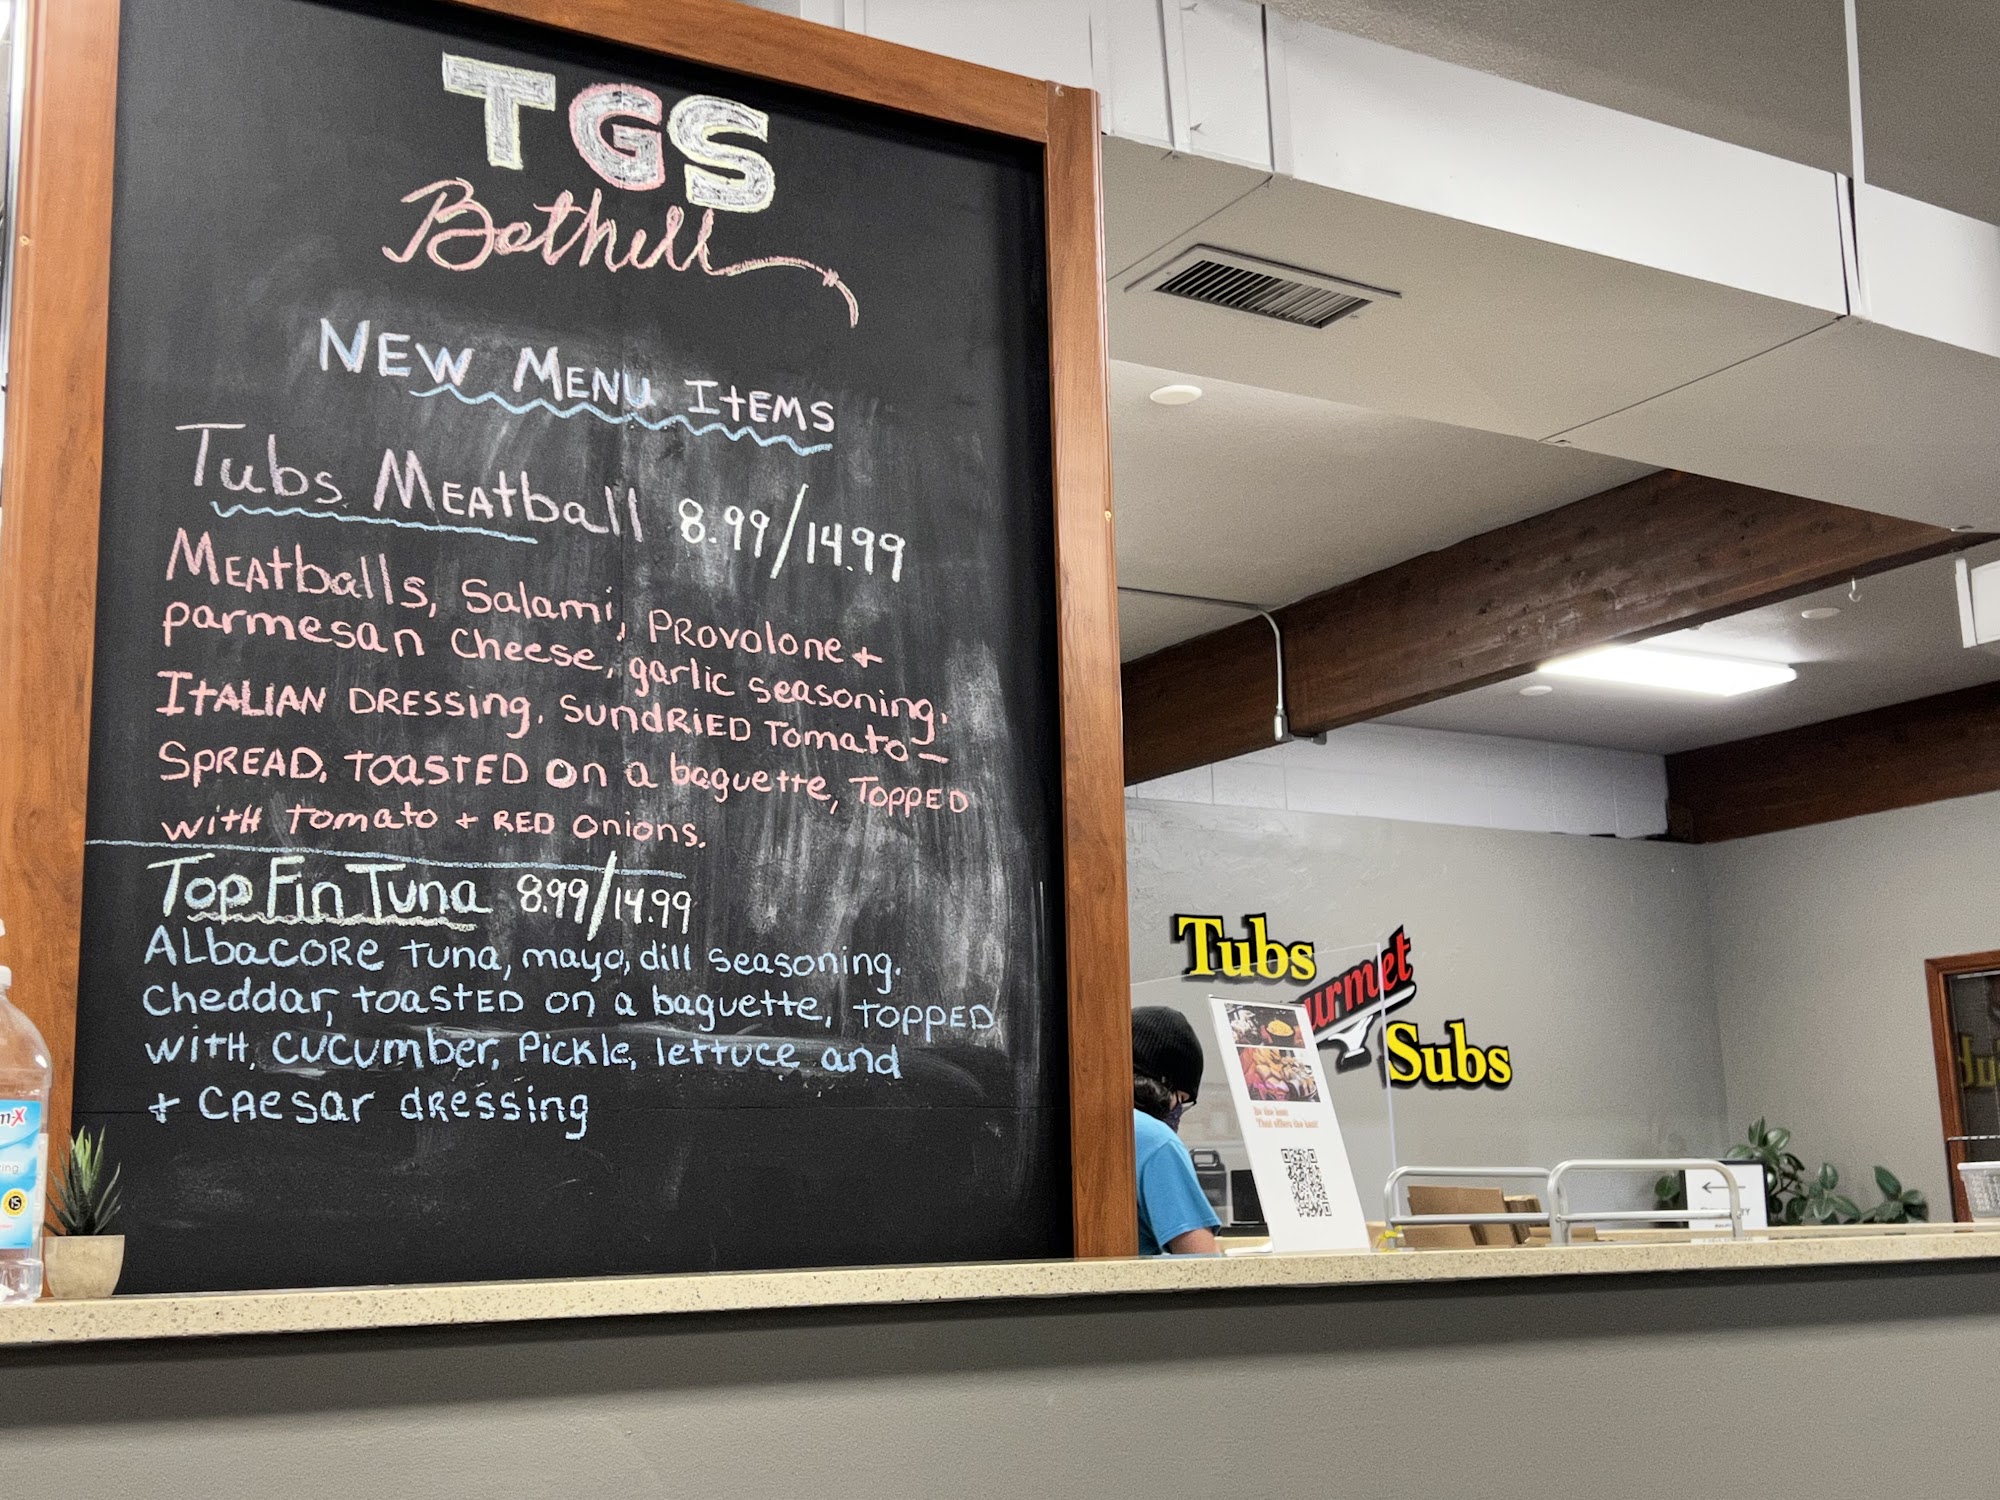 TGS
Bothell
NEW MENU ItEMS
Tubs MEAtball 8.99/14.99
MEAtballs, Salami, PROVOLONE +
parmesan Cheese, garlic seasoning,
ItALIAN DRESSing, SUNDRIED Tomato-
SPREAD, TOASTED On a baguette, TOPPED
with tomato + RED onions.
Top Fin Tuna 8.99/14.99
ALbACORE tuna, mayo, dill seasoning.
Cheddar, TOASTED on a baguette, TOPPED
with, CUCUMber, Pickle, lettuce and
+ CAESar dressing
Tubs
urmet
Subs
15